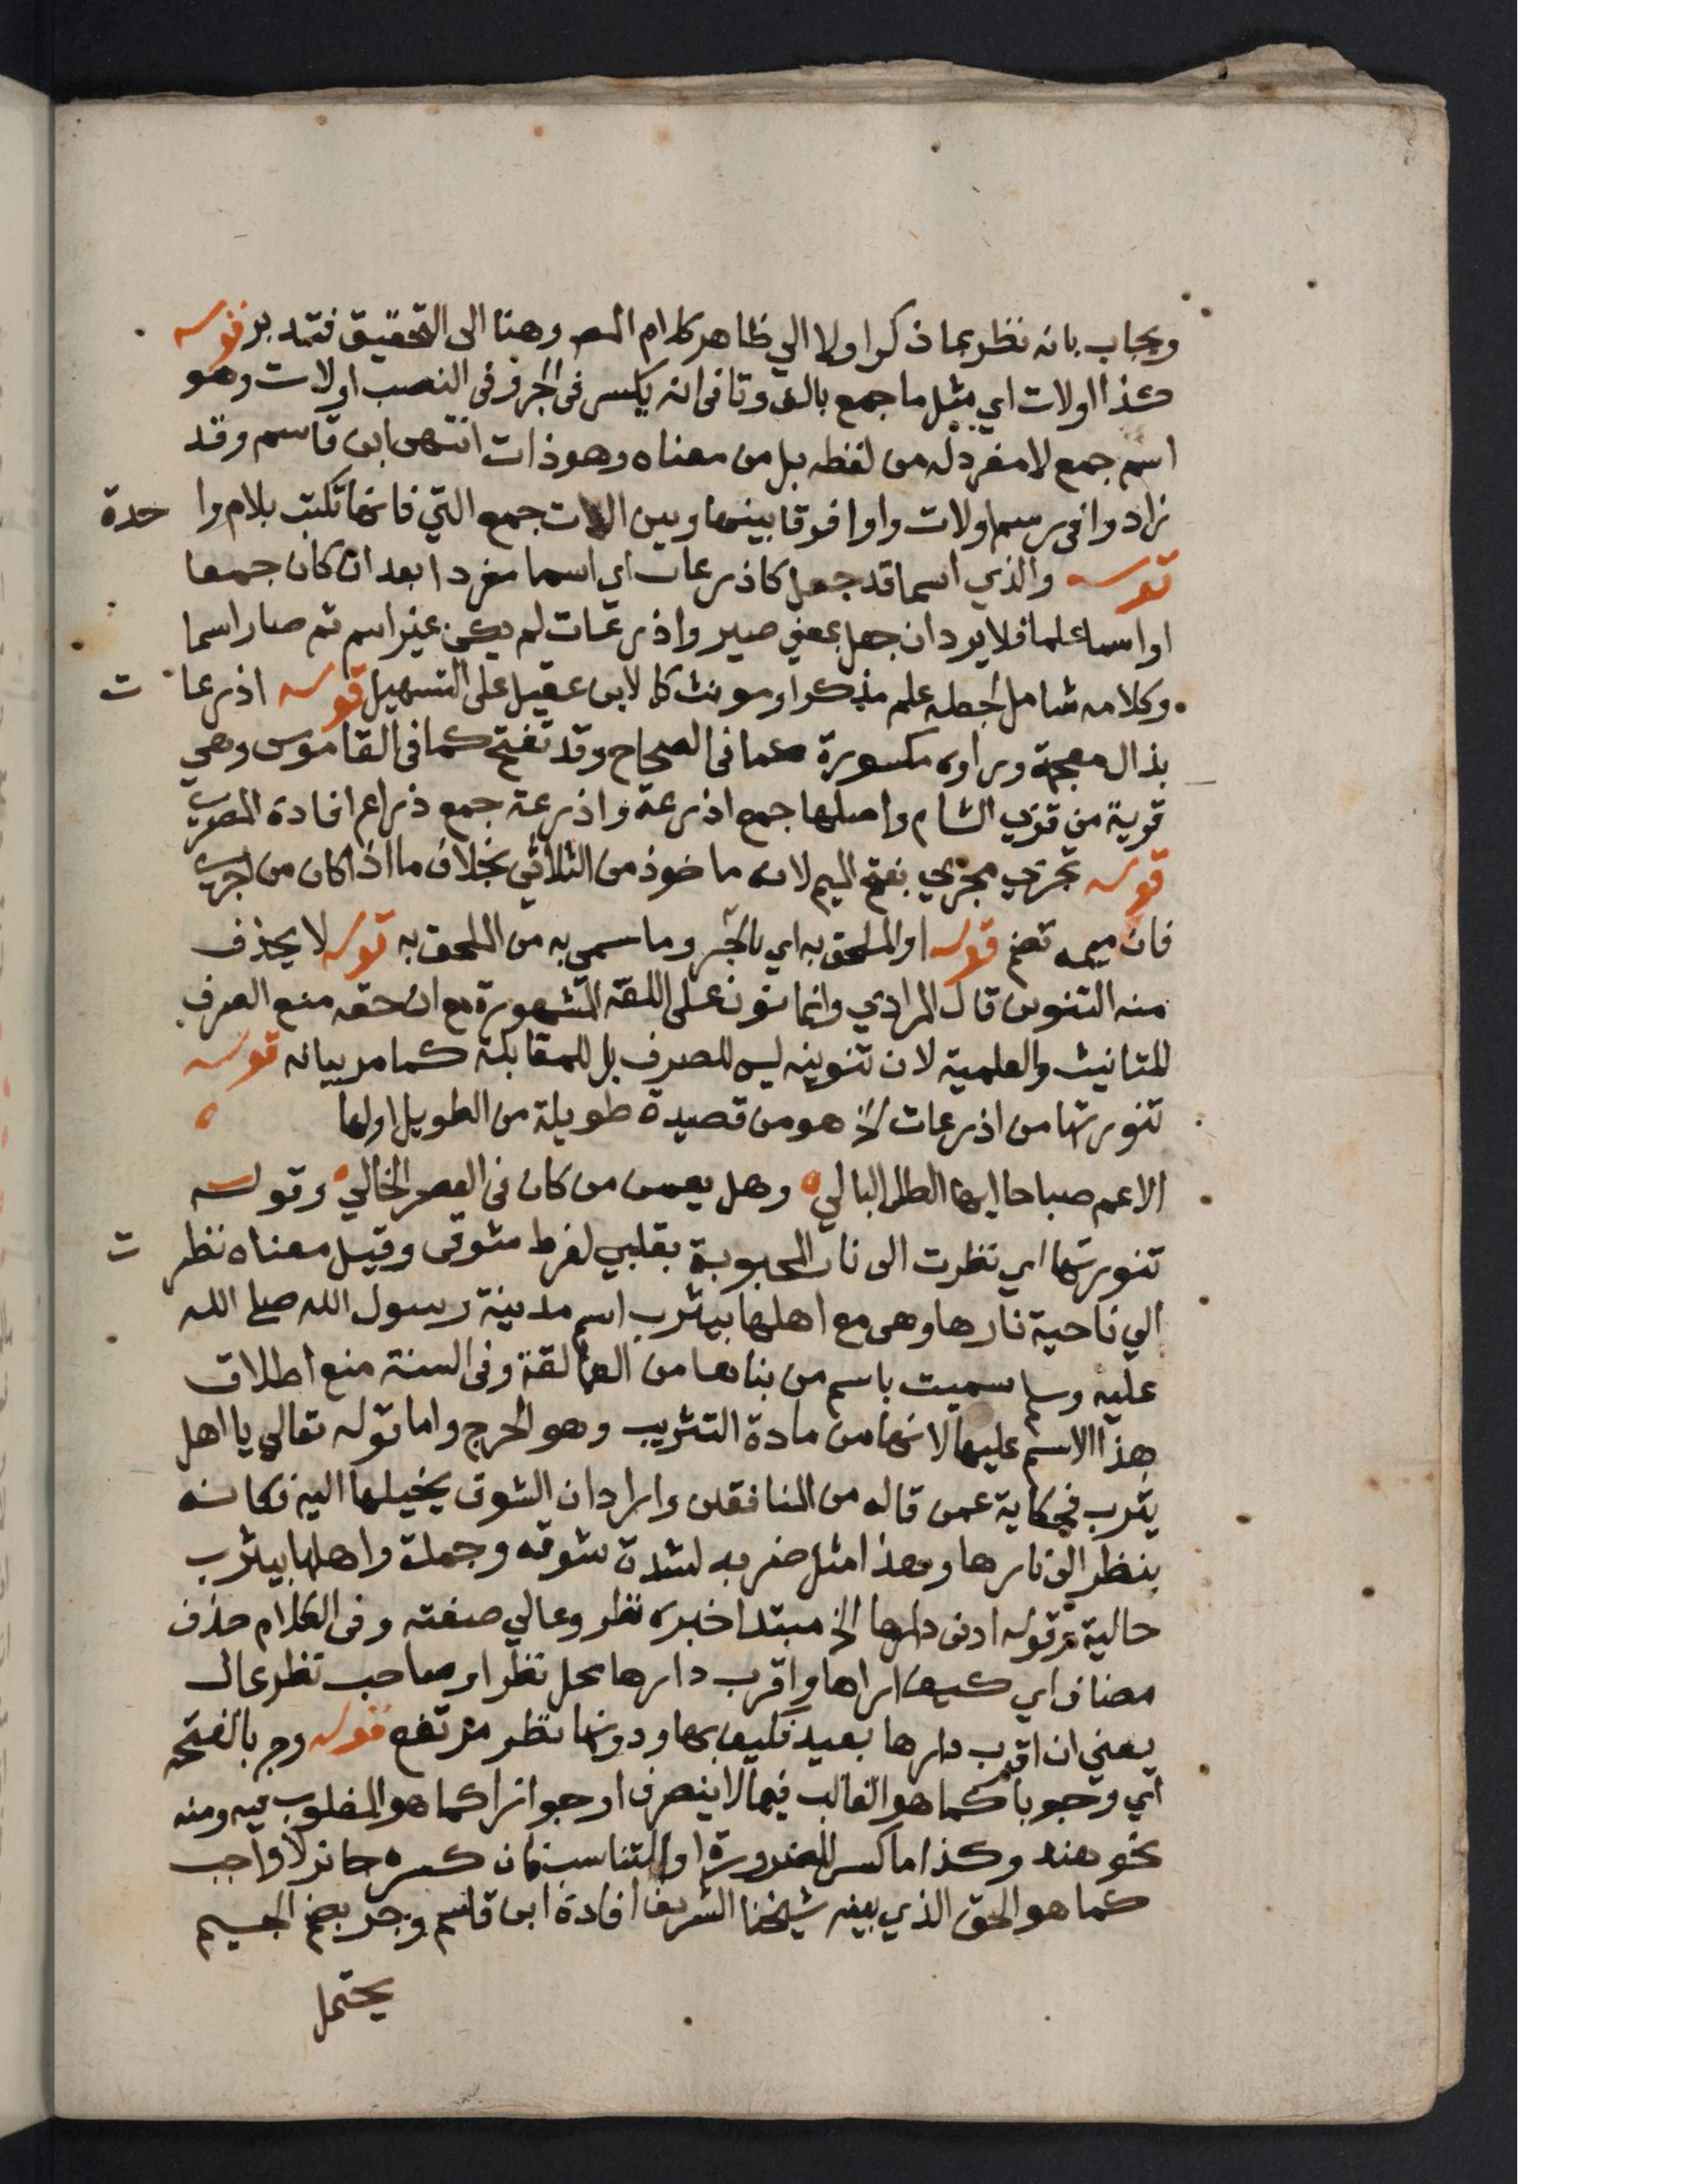 ويجاب بانه نظر بما ذكر اولا الي ظاهر كلام المص وهنا الى التحقيق فتدبر قوله
كذا اولات اي مثل ما جمع بالف وتا في انه يكسر في الجر وفي النصب اولات وهو
اسم جمع لا مفرد له من لفظه بل من معناه وهو ذات انتهى ابن قاسم وقد
زادوا في رسم اولات واوا فوقا بينها وبين اللات جمع التي فانها تكتب بلام وا حدة
قوله والذي اسما قد جعل كاذرعات اي اسما مفردا بعد ان كان جمعا
او اسما علما فلا يرد ان جعل بمعني صير واذرعات لم يكن غير اسم ثم صار اسما
وكلامه شامل لجعله علم مذكر او مونث كما لابن عقيل على التسهيل قوله اذرعا ت
بذال معجمة وراوه مكسورة كما في الصحاح وقد تفتح كما في القاموس وهي
قرية من قري الشام واصلها جمع اذرعة واذرعة جمع ذراع افادة المصرح
قوله تجري مجري بفتح الميم لانه ماخوذ من الثلاثي بخلاف ما اذا كان من اجري
فان ميمه تضم قوله او الملحق به اي بالجر وما سمي به من الملحق به قوله لا يحذف
منه التنوين قال المرادي وانما نون على اللغة المشهورة مع ان حقه منع الصرف
للتانيث والعلمية لان تنوينه ليس للصرف بل للمقابلة كما مر بيانه قوله
تنورتها من اذرعات الخ هو من قصيدة طويلة من الطويل اولها
الا عم صباحا ايها الطلل البالي وهل يعمن من كان في العصر الخالي وقوله
تنورتها اي نظرت الى نار المحبوبة بقلبي لفرط شوقي وقيل معناه نظر ت
الي ناحية نارها وهي مع اهلها بيثرب اسم مدينة رسول الله صلى الله
عليه وسلم سميت باسم من بناها من العمالقة وفي السنة منع اطلاق
هذا الاسم عليها لانها من مادة التثريب وهو الحرج واما قوله تعالي يا اهل
يثرب فحكاية عمن قاله من المنافقين واراد ان الشوق يخيلها اليه فكانه
ينظر الى نارها وهذا مثل ضربه لشدة شوقه وجملة واهلها بيثرب
حالية وقوله ادنى دارها الخ مبتدا خبره نظر وعالي صفته وفي الكلام حذف
مضاف اي كيف اراها واقرب دارها محل نظر او صاحب نظر عال
يعني ان اقرب دارها بعيد فكيف بها ودونها نظر مرتفع قوله وجر بالفتحة
اي وجوبا كما هو الغالب فيما لا ينصرف او جوازا كما هو المغلوب فيه ومنه
نحو هند وكذا ما كسر للضرورة او للتناسب فان كسره جائز لا واجب
كما هو الحق الذي بينه شيخنا الشريف افادة ابن قاسم وجر بضم الجيم
يحتمل